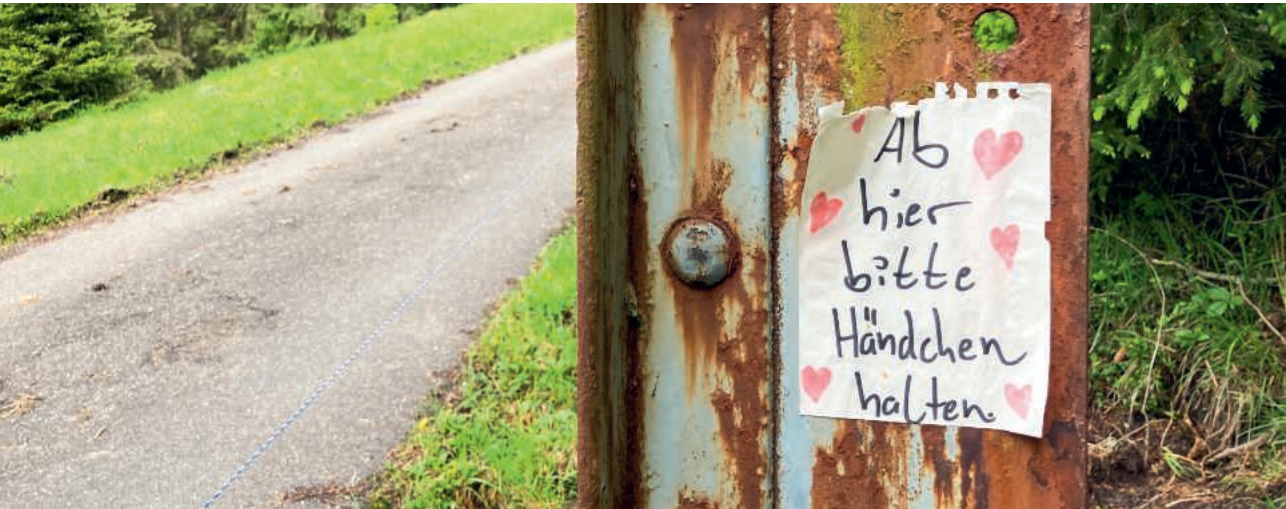 Ab
hier
bitte
Händchen
halten.